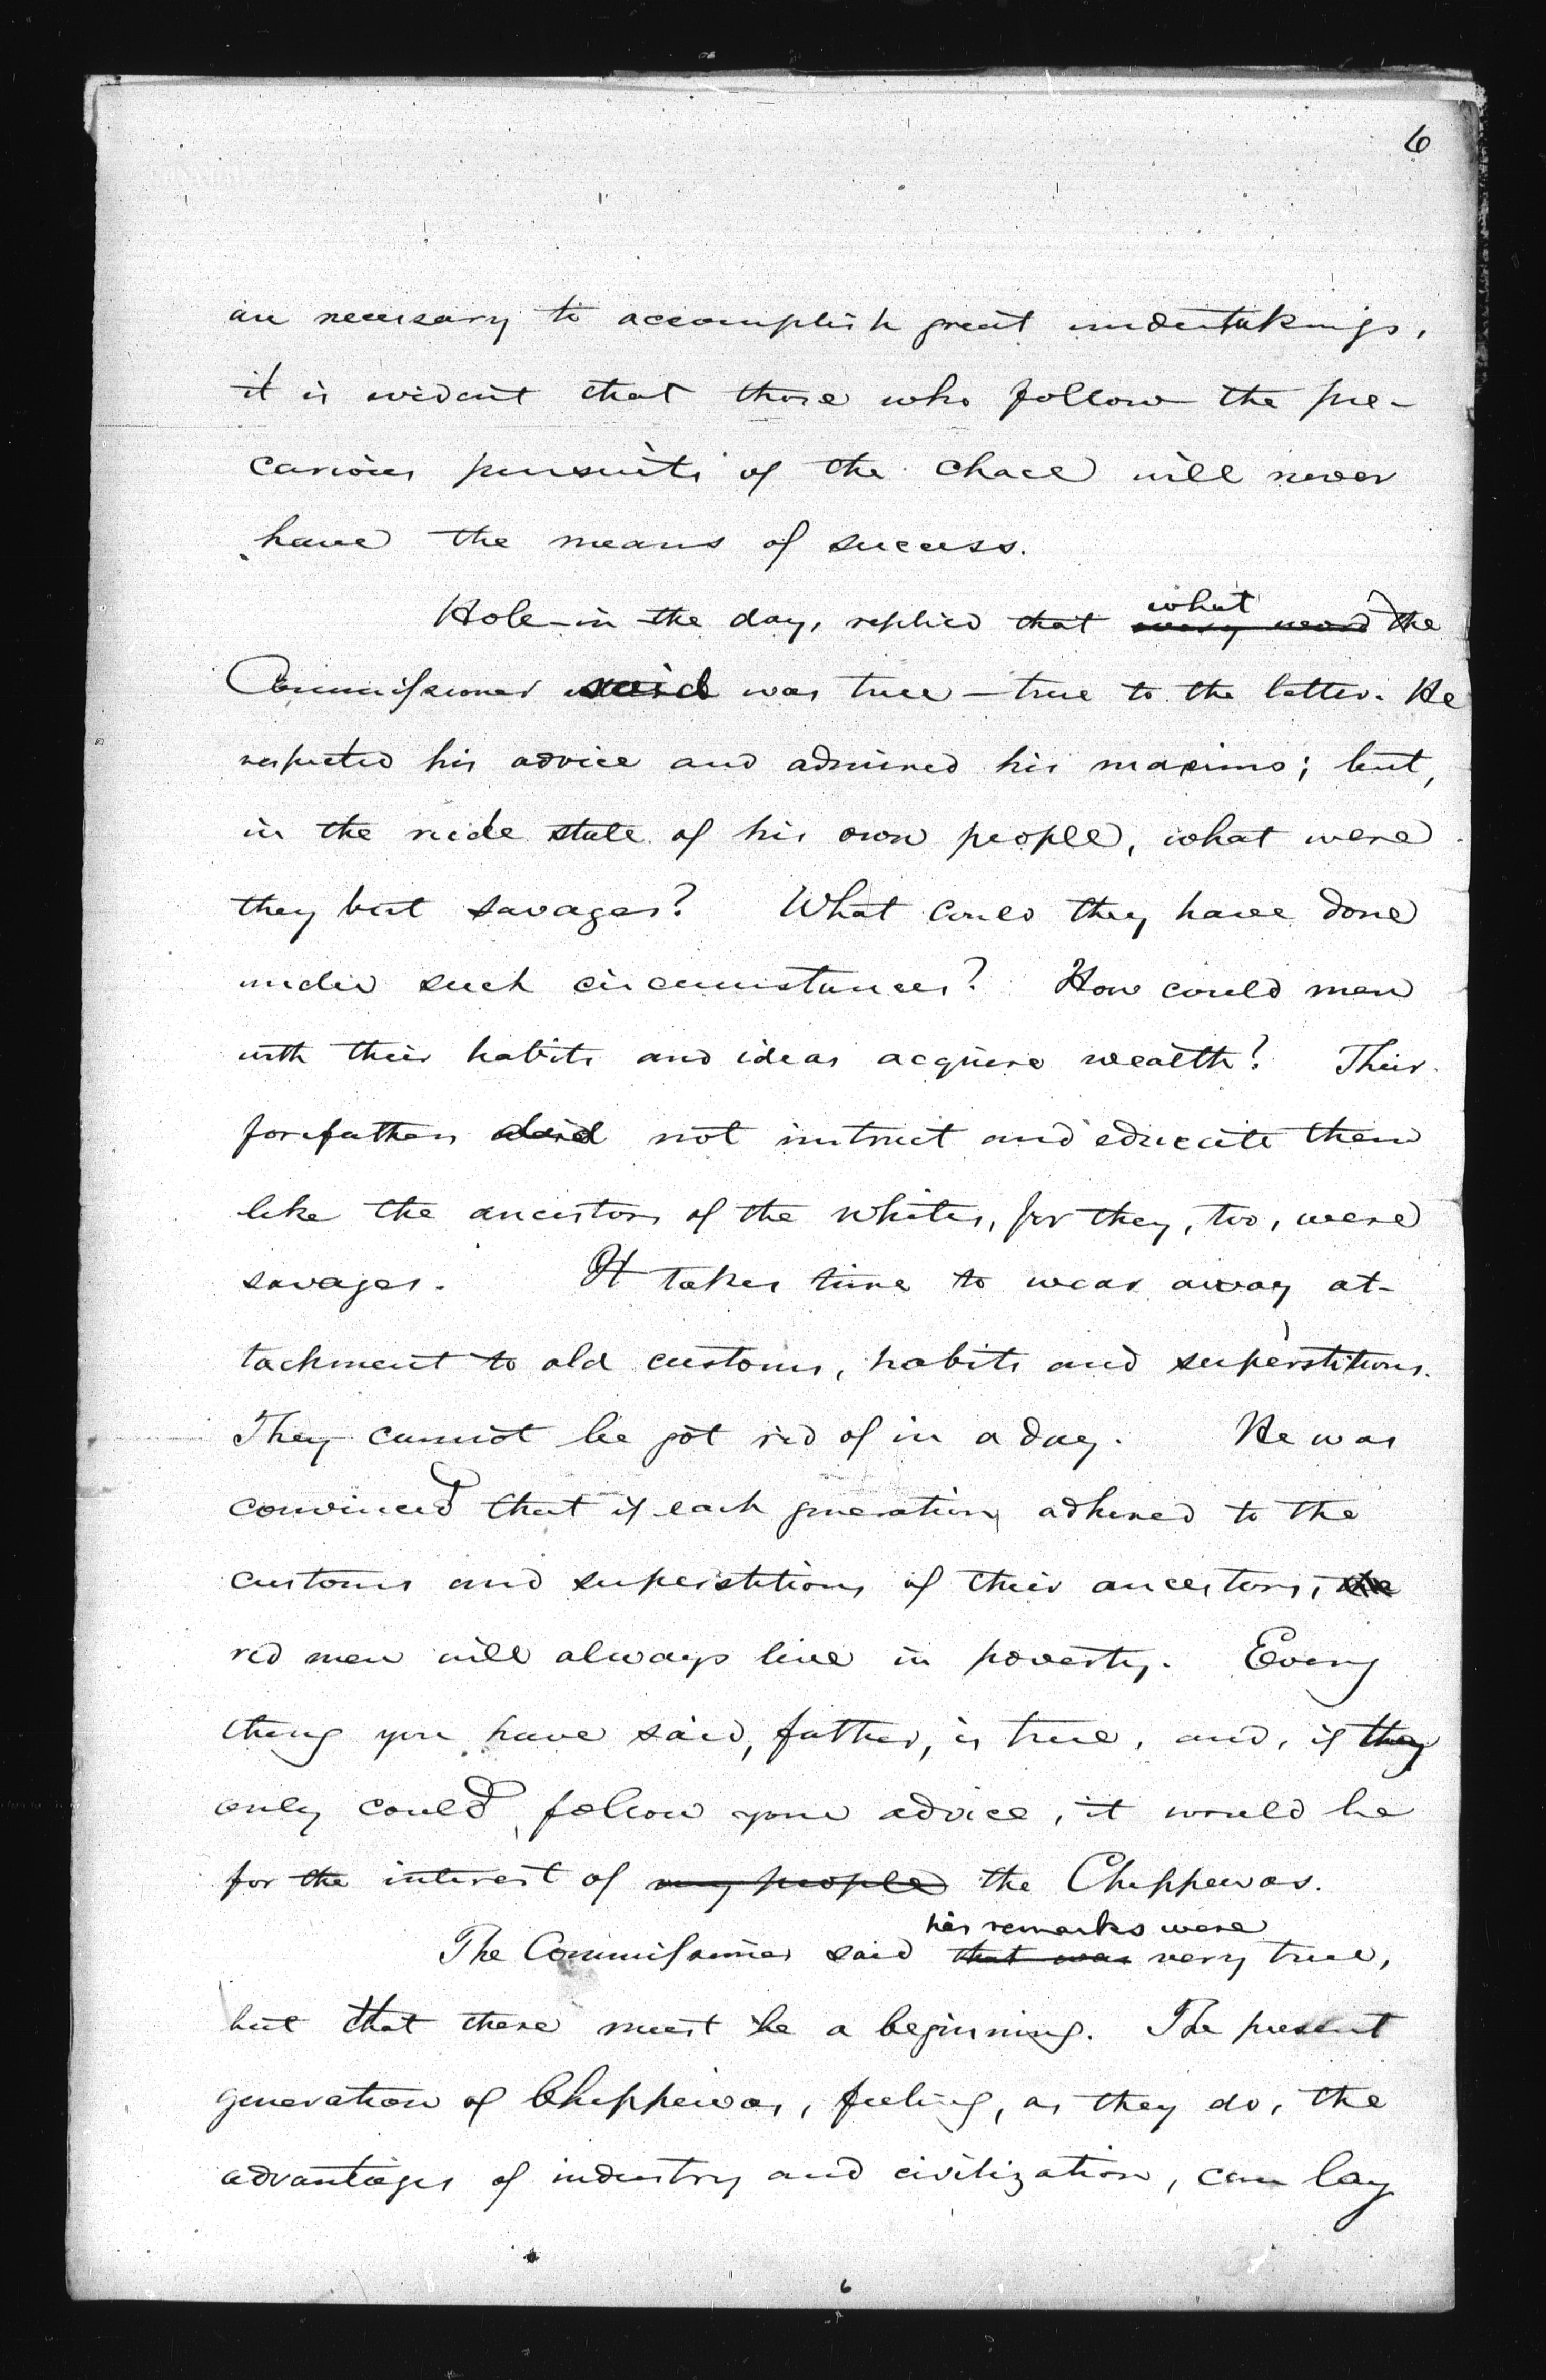 6
are necessary to accomplish great undertakings,
it is evident that those who follow the pre-
carious pursuits of the chace will never
have the means of success.
Hole-in-the day, replied that every word what the
Commissioner said was true – true to the letter. He
respected his advice and admired his maxims; but,
in the rude state of his own people, what were
they but savages? What could they have done
under such circumstances? How could men
with their habits and ideas acquire wealth? Their
forefathers did not instruct and educate them
like the ancestors of the whites, for they, too, were
savages. It takes time to wear away at-
tachment to old customs, habits and superstitions.
They cannot be got rid of in a day. He was
convinced that if each generation adhered to the
customs and superstitions of their ancestors, the
red men will always live in poverty. Every
thing you have said, father, is true, and, if they
only could follow your advice, it would be
for the interest of my people the Chippewas.
his remarks were
The Commissioner said that was very true,
but that there must be a beginning. The present
generation of Chippewas, feeling, as they do, the
advantages of industry and civilization, can lay
6